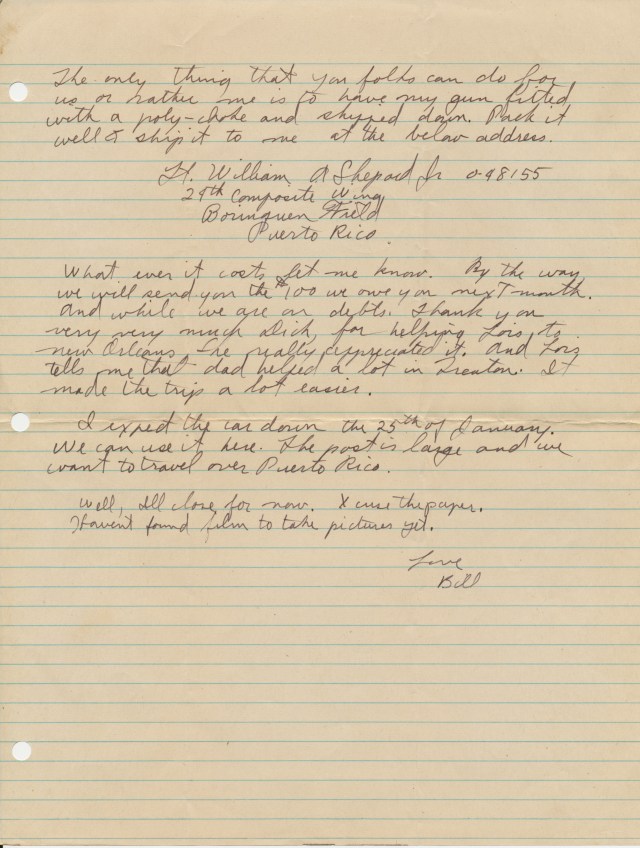 The only thing that you folks can do for
us or rather me is to have my gun fitted
with a poly-choke and shipped down. Pack it
well & ship it to me at the below address.
Lt. William A Shepard Jr 0-98155
29th Composite Wing
Borinquen Field
Puerto Rico
What ever it costs let me know. By the way
we will send you the $100 we owe you next month.
And while we are on debts. Thank you
very very much Dick, for helping Lois, to
new Orleans she really appreciated it. And Lois
tells me that dad helped a lot in Trenton. It
made the trip a lot easier.
I expect the car down the 25th of January.
We can use it here. The post is large and we
want to travel over Puerto Rico.
Well, I'll close for now. Xcuse the paper.
Havent found film to take pictures yet.
Love
Bill